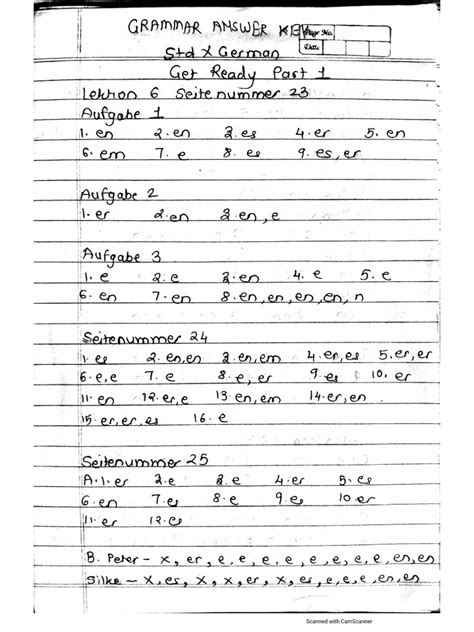 GRAMMAR ANSWER KEY
Page No.
Date
Std X German
Get Ready Part 1
Lektion 6 Seitenummer 23
Aufgabe 1
1. en 2. en 3. es 4. er 5. en
6. em 7. e 8. es 9. es, er
Aufgabe 2
1. er 2. en 3. en, e
Aufgabe 3
1. e 2. e 3. en 4. e 5. e
6. en 7. en 8. en, en, en, en, n
Seitenummer 24
1. es 2. en, en 3. en, em 4. er, es 5. er, er
6. e, e 7. e 8. e, er 9. es 10. er
11. en 12. er, e 13. en, em 14. er, en
15. er, er, es 16. e
Seitenummer 25
A. 1. er 2. e 3. e 4. er 5. es
6. en 7. es 8. e 9. es 10. er
11. er 12. es
B. Peter - x, er, e, e, e, e, e, e, e, e, en, en
Silke - x, es, x, x, er, x, es, e, e, e, en, en
Scanned with CamScanner